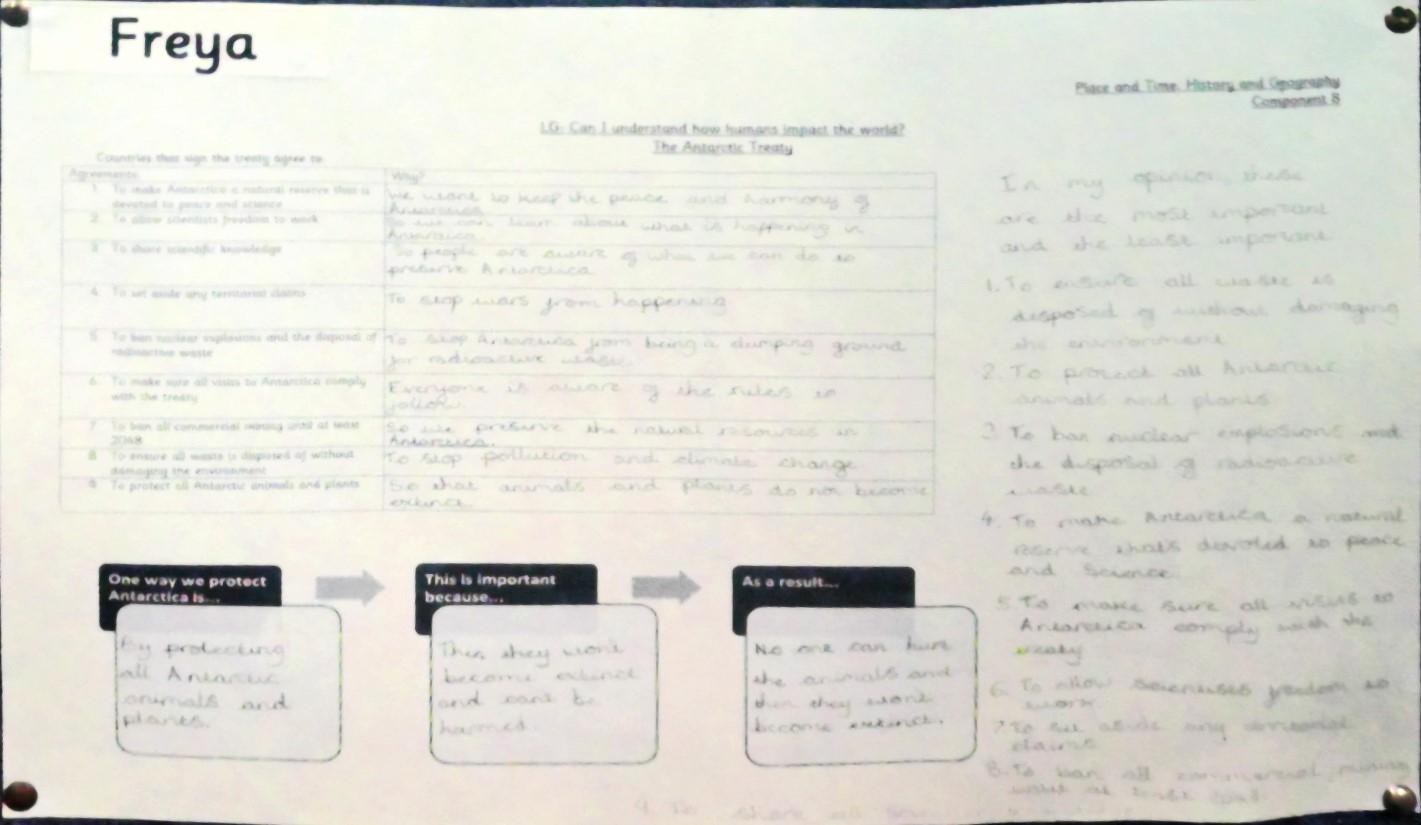 Freya
Place and Time: History and Geography
Component 8
LG: Can I understand how humans impact the world?
The Antarctic Treaty
Countries that sign the treaty agree to:
Agreements
Why?
1. To make Antarctica a natural reserve that is
devoted to peace and science
We want to keep the peace and harmony of
Antarctica
2. To allow scientists freedom to work
So we can learn about what is happening in
Antarctica.
3. To share scientific knowledge
So people are aware of what we can do to
preserve Antarctica
4. To set aside any territorial claims
To stop wars from happening
5. To ban nuclear explosions and the disposal of
radioactive waste
To stop Antarctica from being a dumping ground
for radioactive waste.
6. To make sure all visits to Antarctica comply
with the treaty
Everyone is aware of the rules to
follow.
7. To ban all commercial mining until at least
2048
So we preserve the natural resources in
Antarctica.
8. To ensure all waste is disposed of without
damaging the environment
To stop pollution and climate change
9. To protect all Antarctic animals and plants
So that animals and plants do not become
extinct
One way we protect
Antarctica is...
By protecting
all Antarctic
animals and
plants.
This is important
because...
Then they won't
become extinct
and cant be
harmed.
As a result...
No one can hurt
the animals and
then they wont
become extinct.
In my opinion these
are the most important
and the least important
1. To ensure all waste is
disposed of without damaging
the environment
2. To protect all Antarctic
animals and plants
3. To ban nuclear explosions and
the disposal of radioactive
waste
4. To make Antarctica a natural
reserve thats devoted to peace
and Science.
5. To make sure all visits to
Antarctica comply with the
treaty
6. To allow scientists freedom to
work
7. To set aside any territorial
claims
8. To ban all commercial mining
until at least
9. To share all